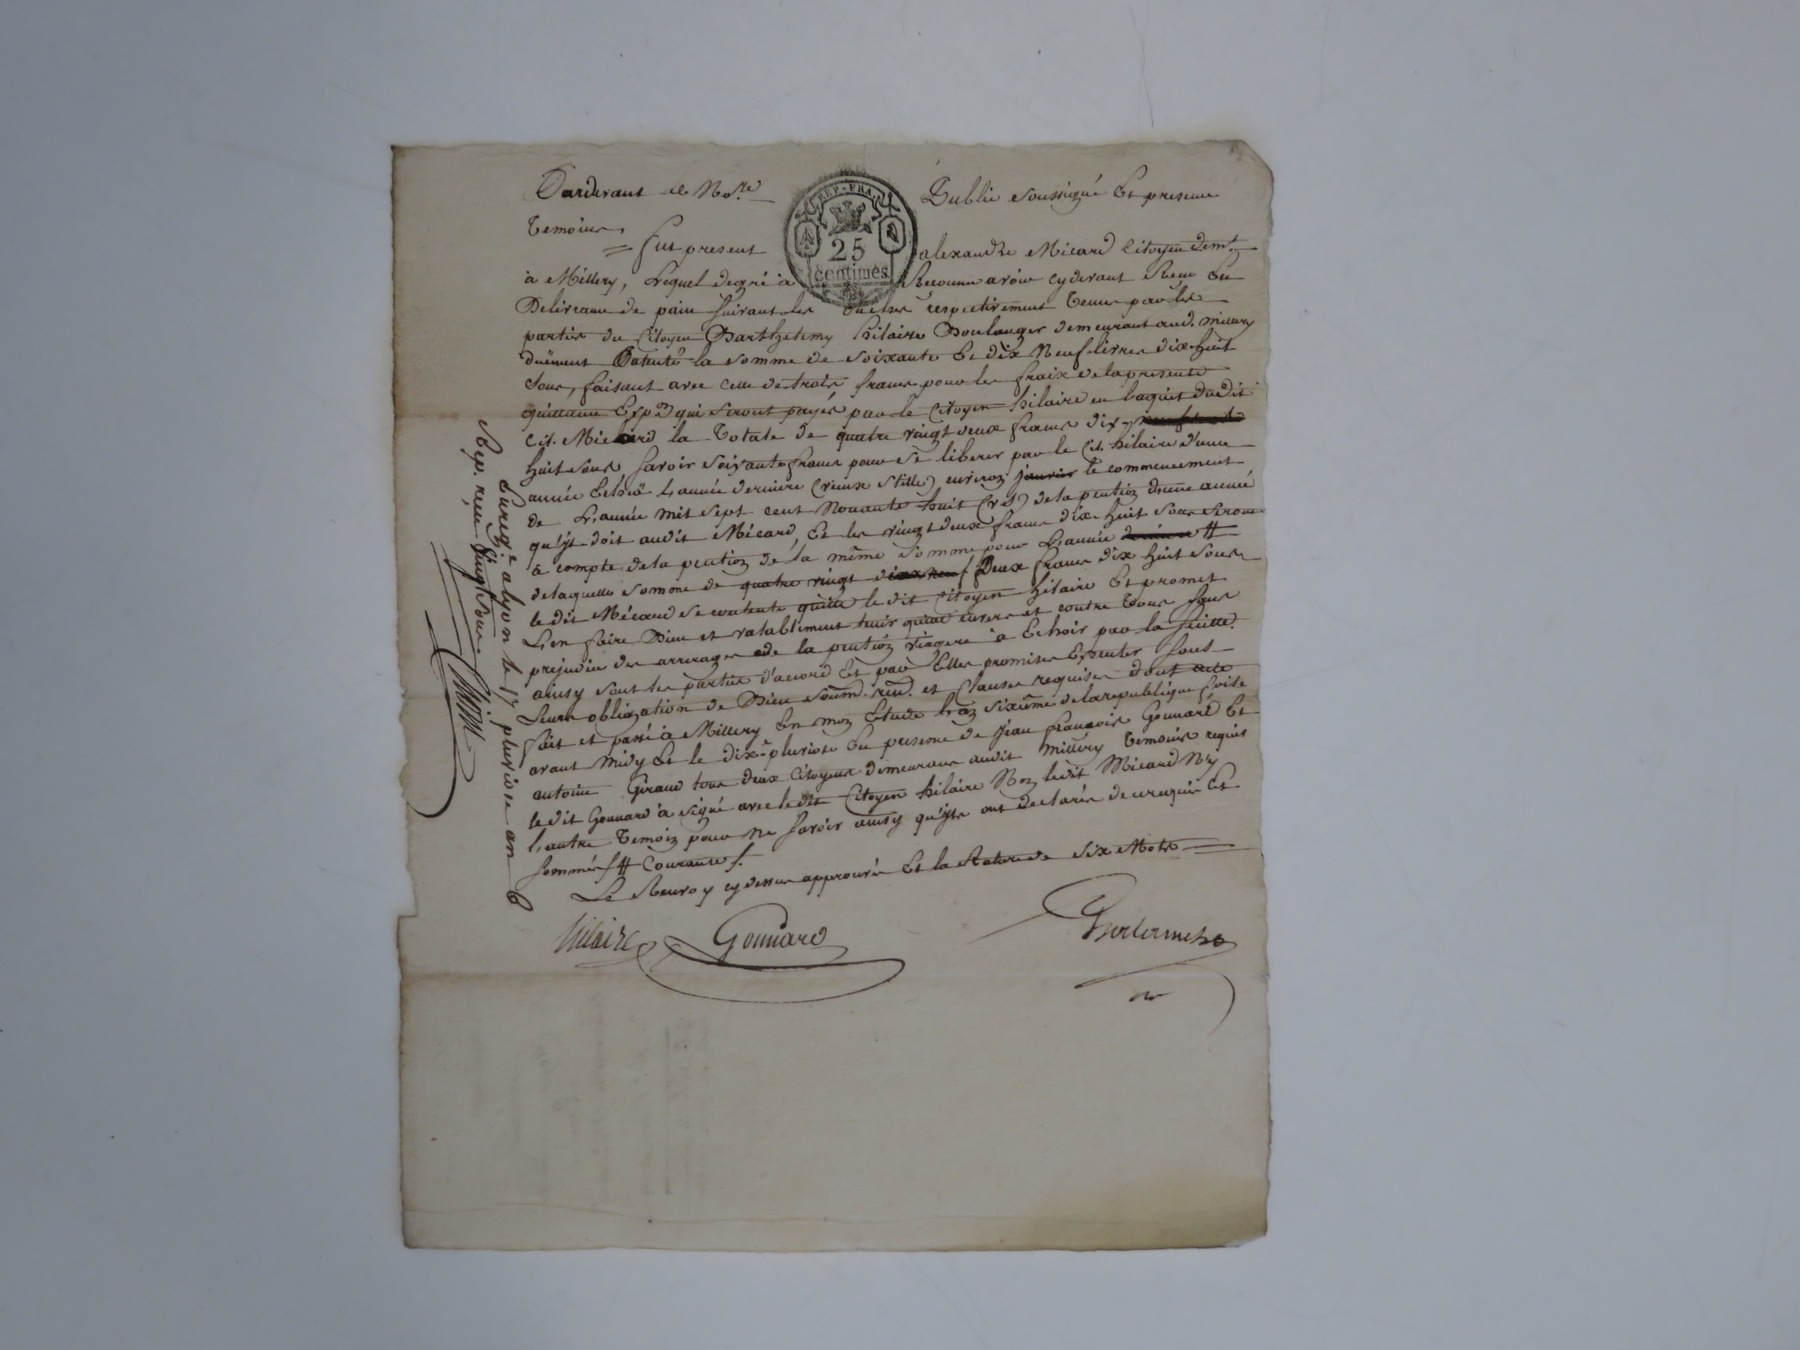 Pardevant le No.re Public soussigné Et presence
Temoins,
= fut present alexandre Micard Citoyen dem.t
à Millery, lequel degré à Reconnu avoir cydevant Receu En
Delivrance de pain suivant les coches respectivement tenues par les
parties du Citoyen Barthelemy hilaire Boulanger demeurant aud. millery
duëment la somme de soixante Et dix Neuf livres dix huit
sous, faisant avec celle de trois francs pour les fraix de la presente
quittance Exp.on qui seront payés par le Citoyen hilaire en l'aquit dudit
Cit. Micard la Totale de quatre vingt deux francs dix
huit sous, savoir soixante francs pour se liberer par le Cit. hilaire d'une
année Echuë L'année derniere (vieux stille) environ janvier le commencement
de L'année mil sept cent Nonante huit (v.s) de la pention d'une année
qu'il doit audit Micard, Et les vingt deux francs dix huit sous seront
à compte de la pention de la même somme pour L'année #
de laquelle somme de quatre vingt Deux francs dix huit sous
le dit Micard se contente quitte le dit Citoyen hilaire Et promet
L'en faire Dieu et valablement tenir quitte envers et contre tous sans
prejudice des arrerages de la pention viagere à Echoir par la suitte.
ainsy sont les parties d'accord Et par Elles promises Executer sous
Leurs obligation de Bien soum. ren. et Clauses requises dont acte
fait et passé à Millery En mon Etude L'an sixième de la republique
avant midy Et le dix pluviose En presence de jean francois Gonnard Et
antoine Giraud tous deux Citoyens demeurans audit Millery Temoins requis
le dit Gonnard à signé avec le dit Citoyen hilaire Non ledit Micard Ny
L'autre Temoin pour ne savoir ainsy qu'ils ont declarés de ce requis Et
sommés /# Courante /.
Le Renvoy cy dessus approuvé Et la Rature de six Mots =
hilaire Gonnard
REP. FRA.
25
centimes
Enreg.é a lyon le 17 pluviose an 6
Rep. reçu vingt sous